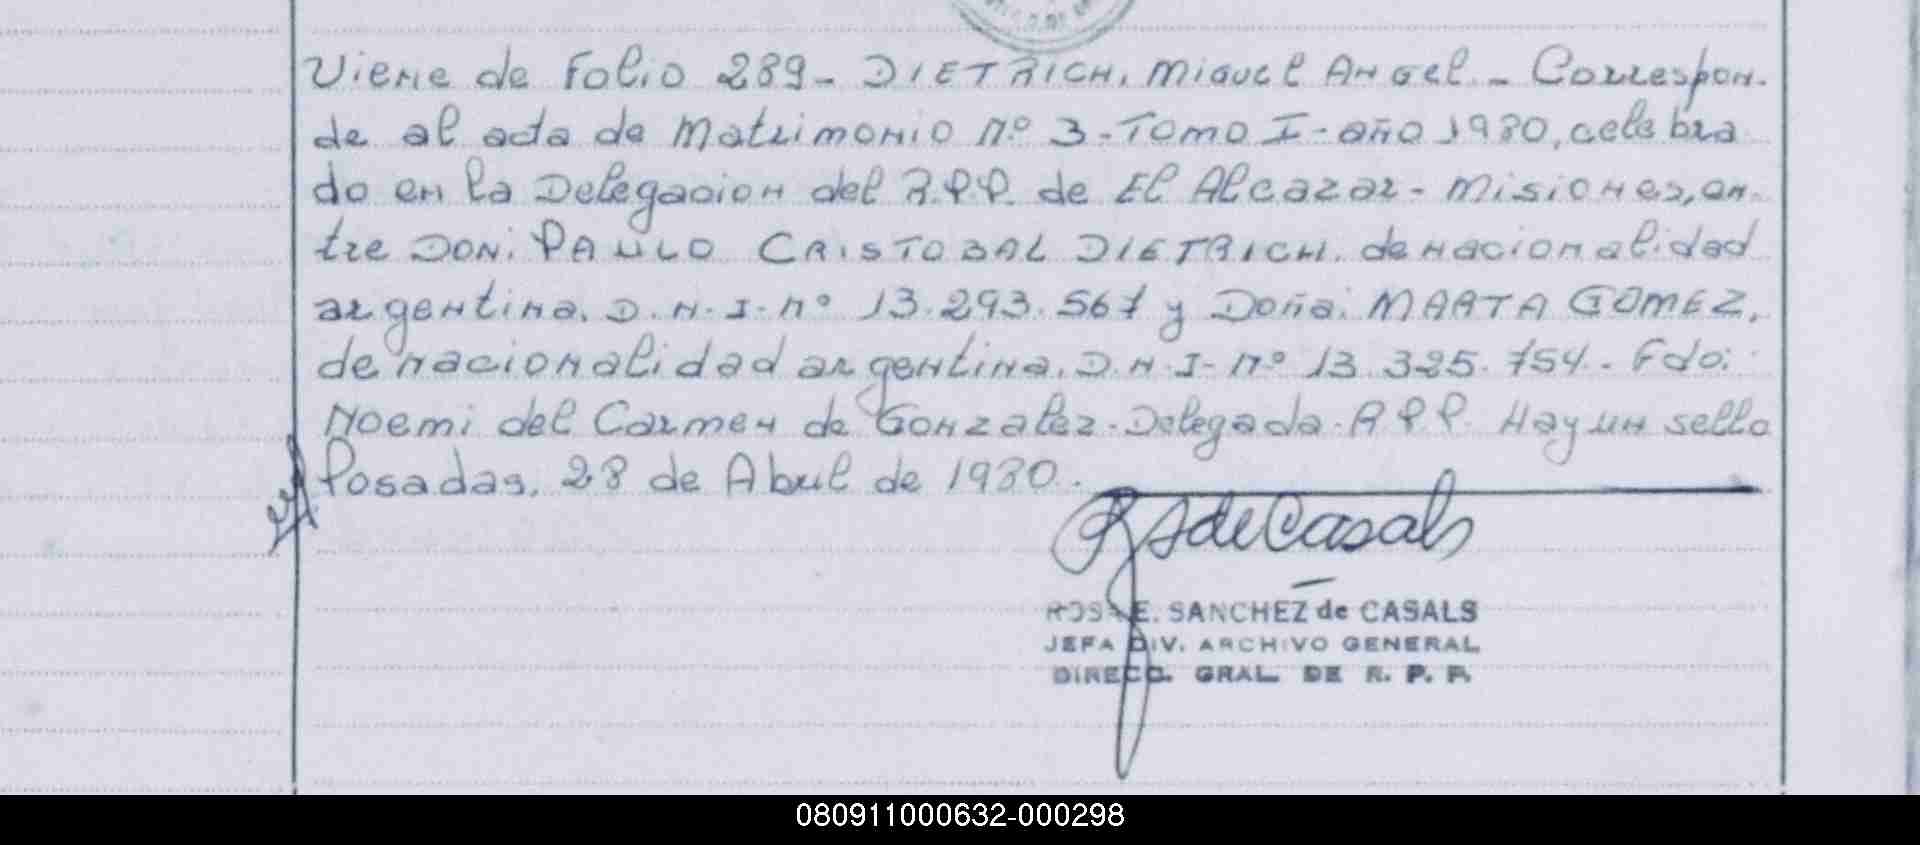 Viene de Folio 289- DIETRICH, Miguel Angel - Correspon-
de al acta de Matrimonio nº 3-Tomo I-año 1980, celebra
do en la Delegacion del R.P.P. de El Alcazar - Misiones, en-
tre DON: PAULO CRISTOBAL DIETRICH, de nacionalidad
argentina, D.N.I-nº 13.293.567 y Doña: MARTA GOMEZ,
de nacionalidad argentina, D.N.I-nº 13.325.754.- Fdo:
Noemi del Carmen de Gonzalez-Delegada-R.P.P. Hay un sello
Posadas, 28 de Abril de 1980.
RSdeCasals
ROSA E. SANCHEZ de CASALS
JEFA DIV. ARCHIVO GENERAL
DIRECC. GRAL. DE R. P. P.
080911000632-000298